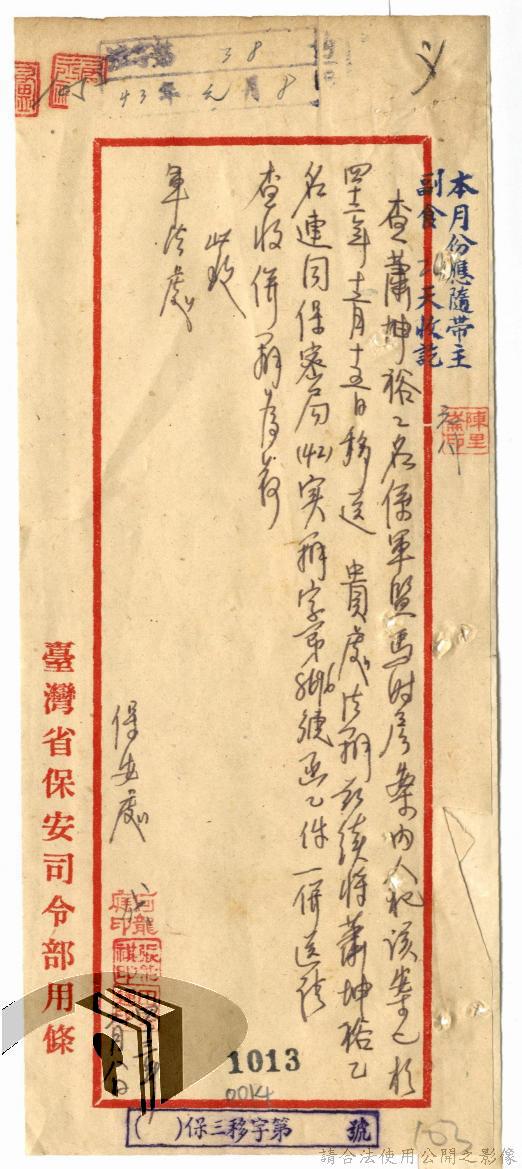 43年元月8
38
本月份應隨帶主
副食 天收訖
查蕭坤裕乙名係軍監馬時彥案內人犯該案已於
四十二年十二月十五日移送 貴處法辦茲續將蕭坤裕乙
名連同保密局(42)实辦字第 號函乙件一併送請
查收併辦為荷
此致
軍法處
保安處
臺灣省保安司令部用條
1013
0014
( )保三移字第 號
103
請合法使用公開之影像